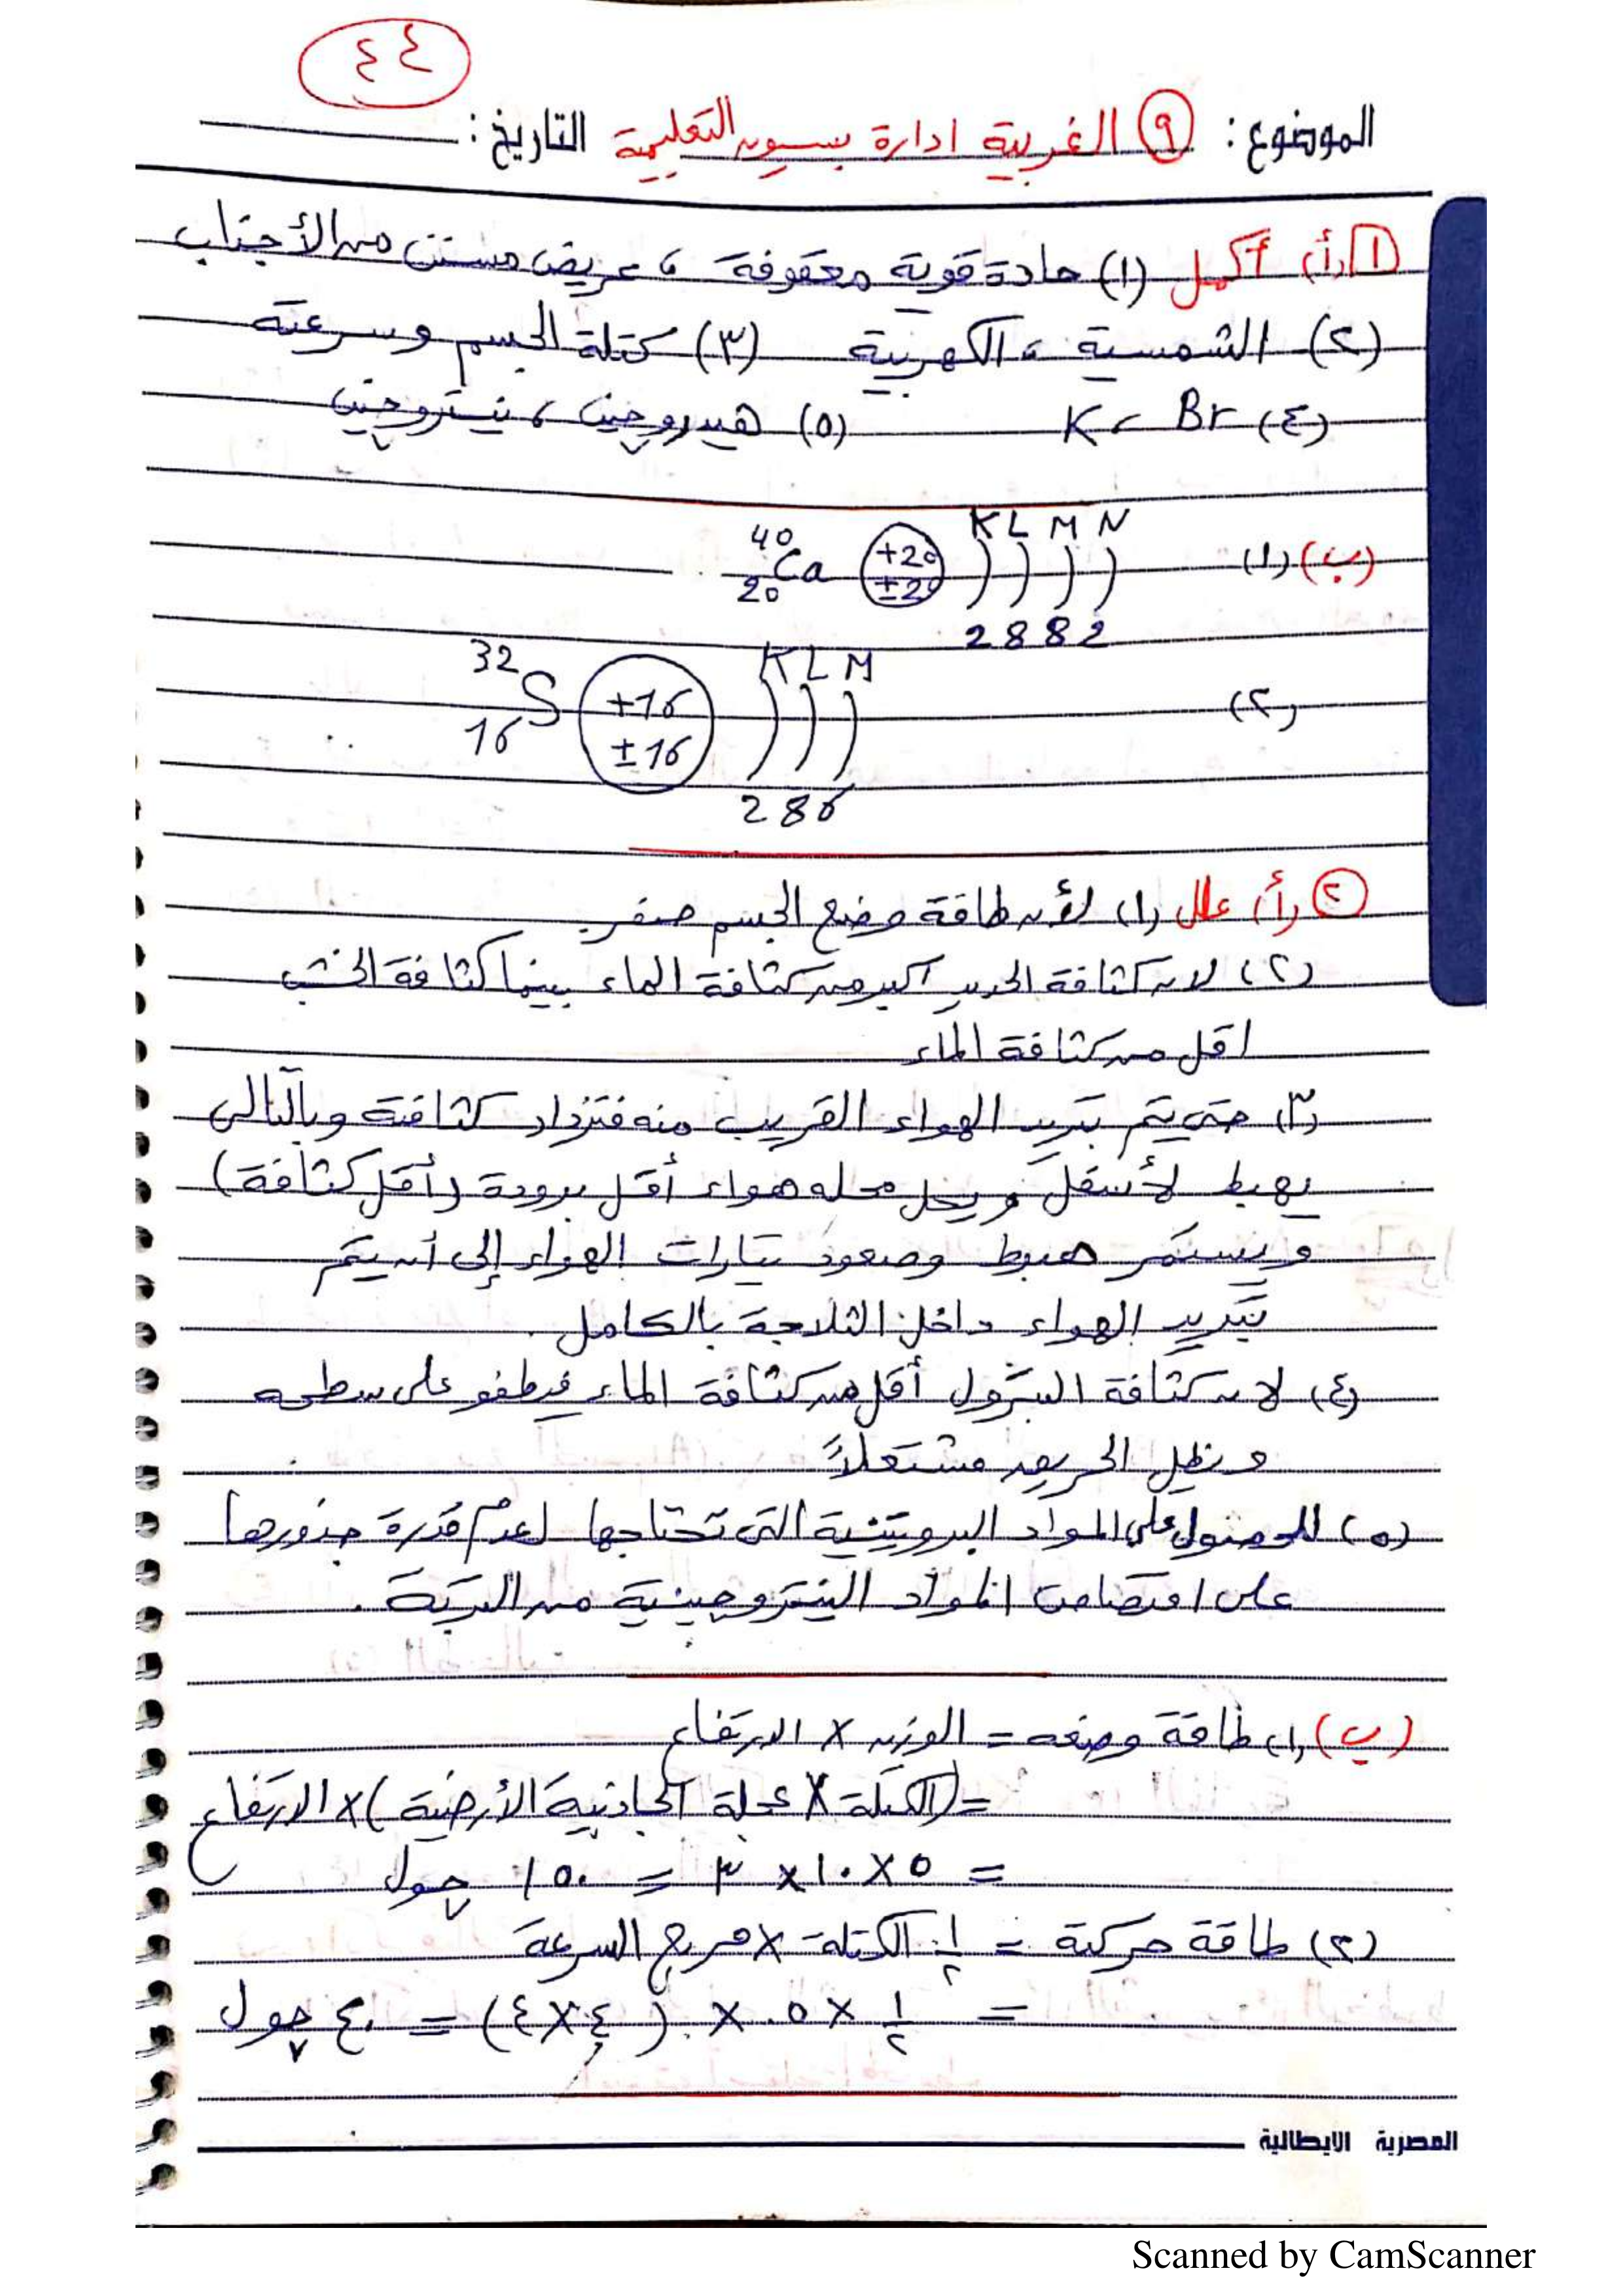 ٤٤
الموضوع: ٩ الغربية ادارة بسيون التعليمية التاريخ:
١ (أ) أكمل (١) حادة قوية معقوفة ، عريض مسنن من الأجناب
(٢) الشمسية ، الكهربية (٣) كتلة الجسم وسرعته
(٤) Br ، K (٥) هيدروجين ، نيتروجين
K L M N
(ب) (١) 40 Ca 20 +20 ±20
2 8 8 2
K L M
(٢) 32 S 16 +16 ±16
2 8 6
٢ (أ) علل (١) لأن طاقة وضع الجسم صفر
(٢) لان كثافة الحديد اكبر من كثافة الماء بينما كثافة الخشب
اقل من كثافة الماء
(٣) حتى يتم تبريد الهواء القريب منه فتزداد كثافته وبالتالى
يهبط لأسفل ويحل محله هواء أقل برودة (أقل كثافة)
ويستمر هبوط وصعود تيارات الهواء إلى أن يتم
تبريد الهواء داخل الثلاجة بالكامل .
(٤) لان كثافة البترول أقل من كثافة الماء فيطفو على سطحه
ويظل الحريق مشتعلاً
(٥) للحصول على المواد البروتينية التى تحتاجها لعدم قدرة جذورها
على امتصاص المواد النيتروجينية من التربة .
(ب) (١) طاقة وضعه = الوزن × الارتفاع
= (الكتلة × عجلة الجاذبية الأرضية) × الارتفاع
= ٥ × ١٠ × ٣ = ١٥٠ چول
(٢) طاقة حركته = ١/٢ الكتلة × مربع السرعة
= ١/٢ × ٥ × (٤×٤) = ٤٠ چول
المصرية الايطالية
Scanned by CamScanner